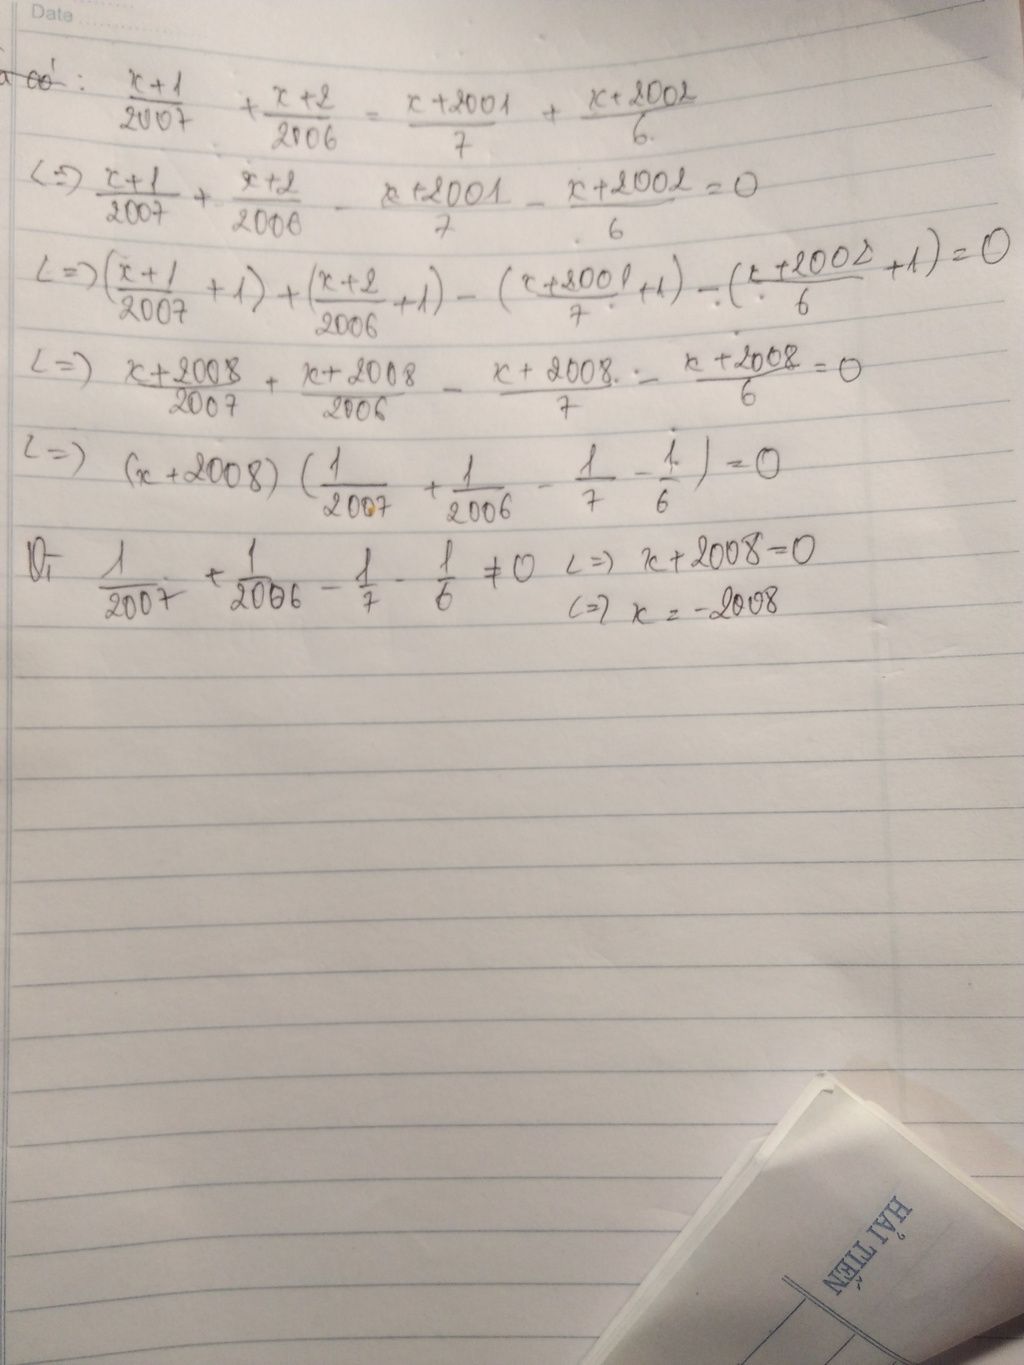 Date
có: x+1/2007 + x+2/2006 = x+2001/7 + x+2002/6
<=> x+1/2007 + x+2/2006 - x+2001/7 - x+2002/6 = 0
<=> (x+1/2007 + 1) + (x+2/2006 + 1) - (x+2001/7 + 1) - (x+2002/6 + 1) = 0
<=> x+2008/2007 + x+2008/2006 - x+2008/7 - x+2008/6 = 0
<=> (x+2008) (1/2007 + 1/2006 - 1/7 - 1/6) = 0
Vì 1/2007 + 1/2006 - 1/7 - 1/6 ≠ 0 <=> x+2008=0
<=> x = -2008
HẢI TIẾN